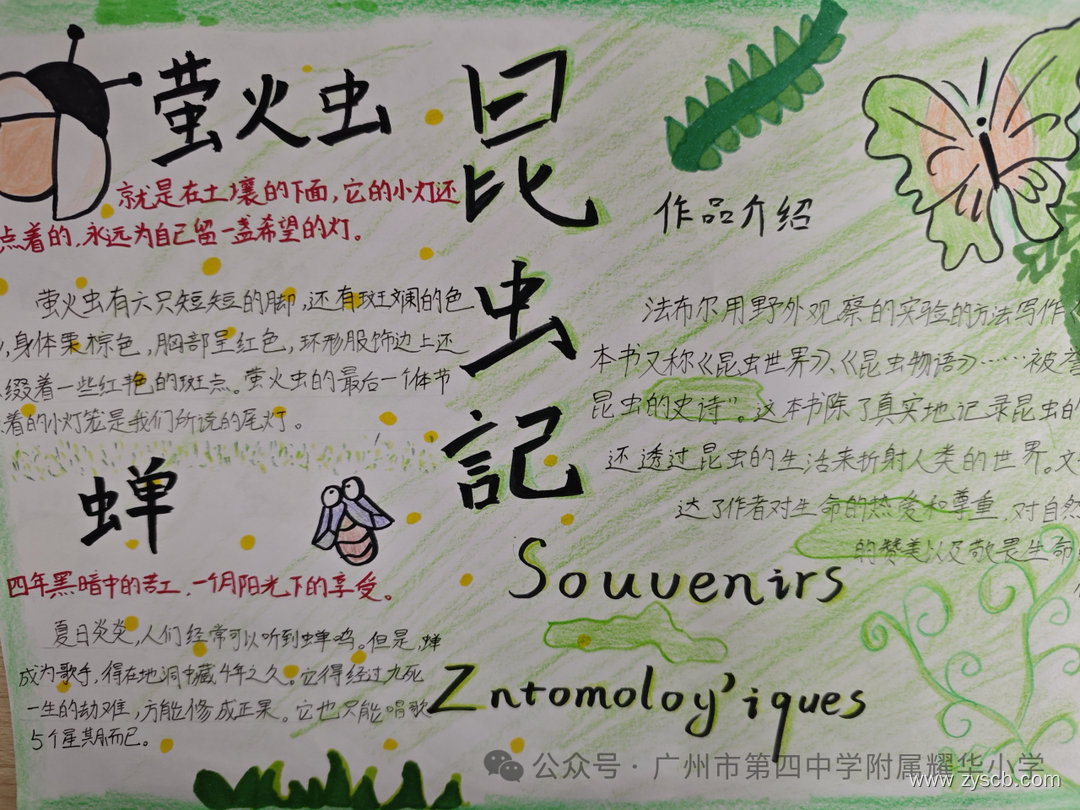 萤火虫
就是在土壤的下面,它的小灯还
点着的,永远为自己留一盏希望的灯。
萤火虫有六只短短的脚,还有斑斓的色
,身体栗棕色,胸部呈红色,环形服饰边上还
缀着一些红艳的斑点。萤火虫的最后一个体节
着的小灯笼是我们所说的尾灯。
蝉
四年黑暗中的苦工,一个月阳光下的享受。
夏日炎炎,人们经常可以听到蝉鸣。但是,蝉
成为歌手,得在地洞中藏4年之久。它得经过九死
一生的劫难,方能修成正果。它也只能唱歌
5个星期而已。
昆
虫
記
Souvenirs
Zntomoloy'iques
作品介绍
法布尔用野外观察的实验的方法写作《
本书又称《昆虫世界》、《昆虫物语》……被誉
昆虫的史诗"。这本书除了真实地记录昆虫的
还透过昆虫的生活来折射人类的世界。文
达了作者对生命的热爱和尊重,对自然
的赞美以及敬畏生命
公众号·广州市第四中学附属耀华小学
www.zyscb.com